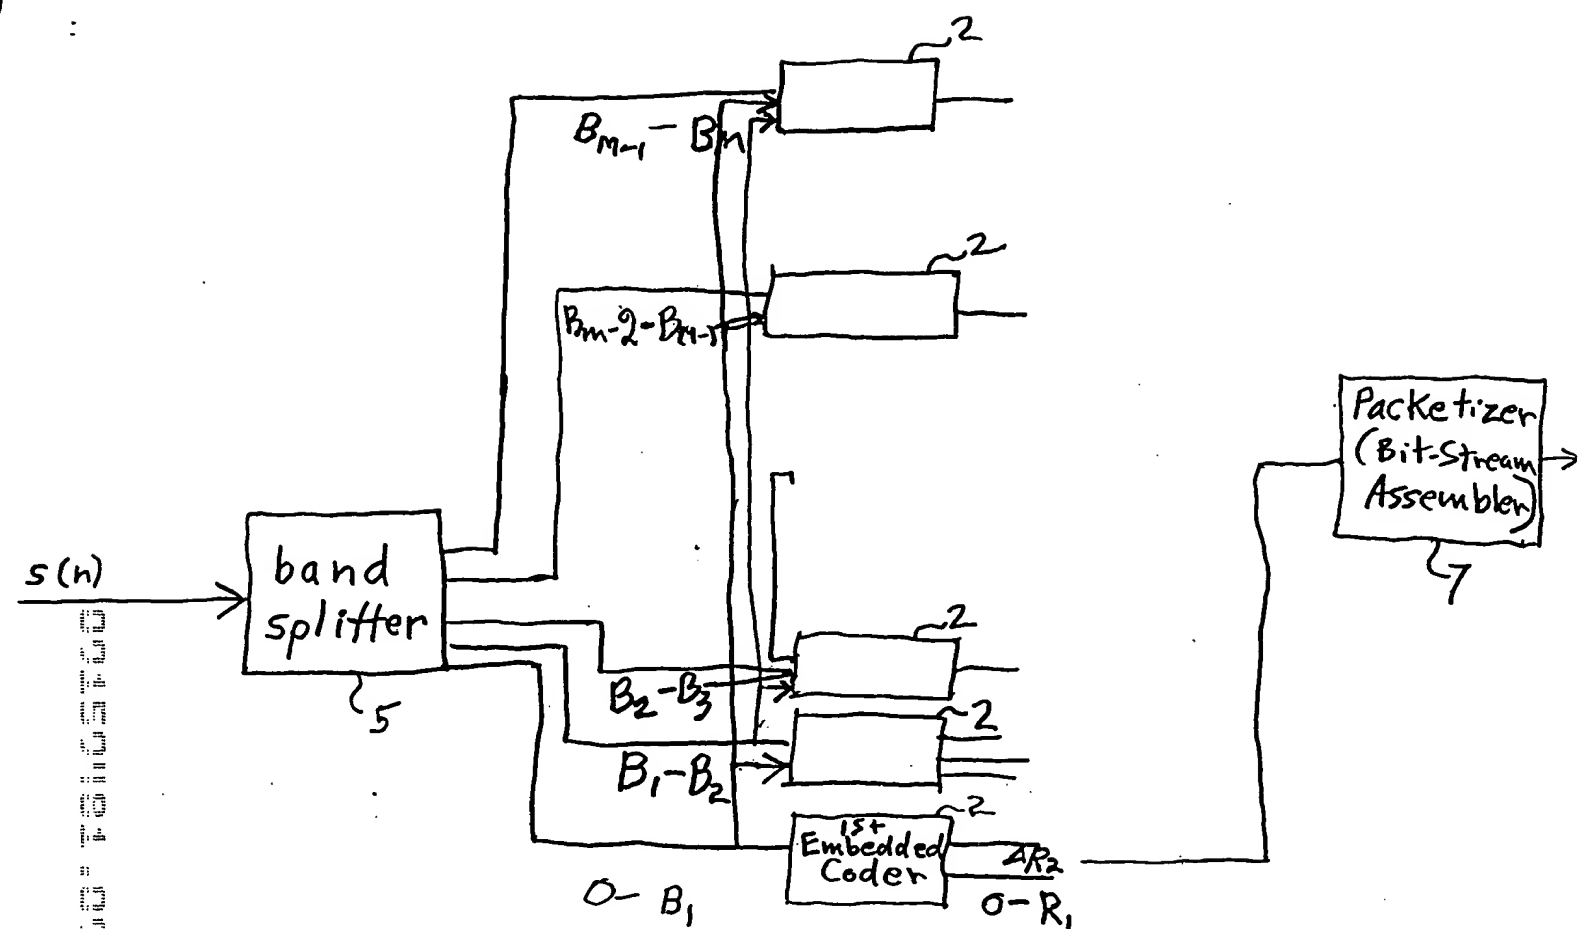 2
B_{m-1} - B_m
2
B_{m-2} - B_{m-1}
Packetizer
(Bit-Stream
Assembler)
7
s(n)
band
splitter
5
2
B_2 - B_3
2
B_1 - B_2
2
1st
Embedded
Coder
ΔR_2
0 - B_1
0 - R_1